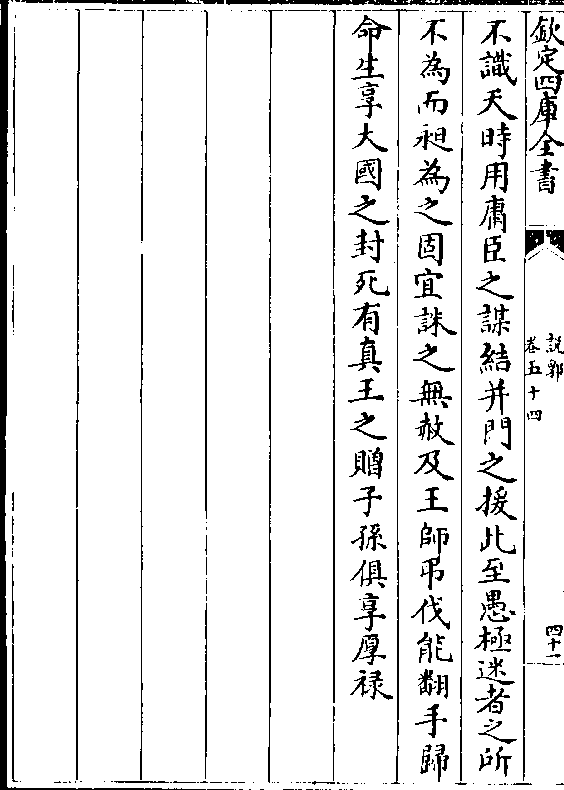 欽定四庫全書
說郛
卷五十四
四十一
不識天時用庸臣之謀結并門之援此至愚極迷者之所
不為而昶為之固宜誅之無赦及王師弔伐能翻手歸
命生享大國之封死有真王之贈子孫俱享厚祿